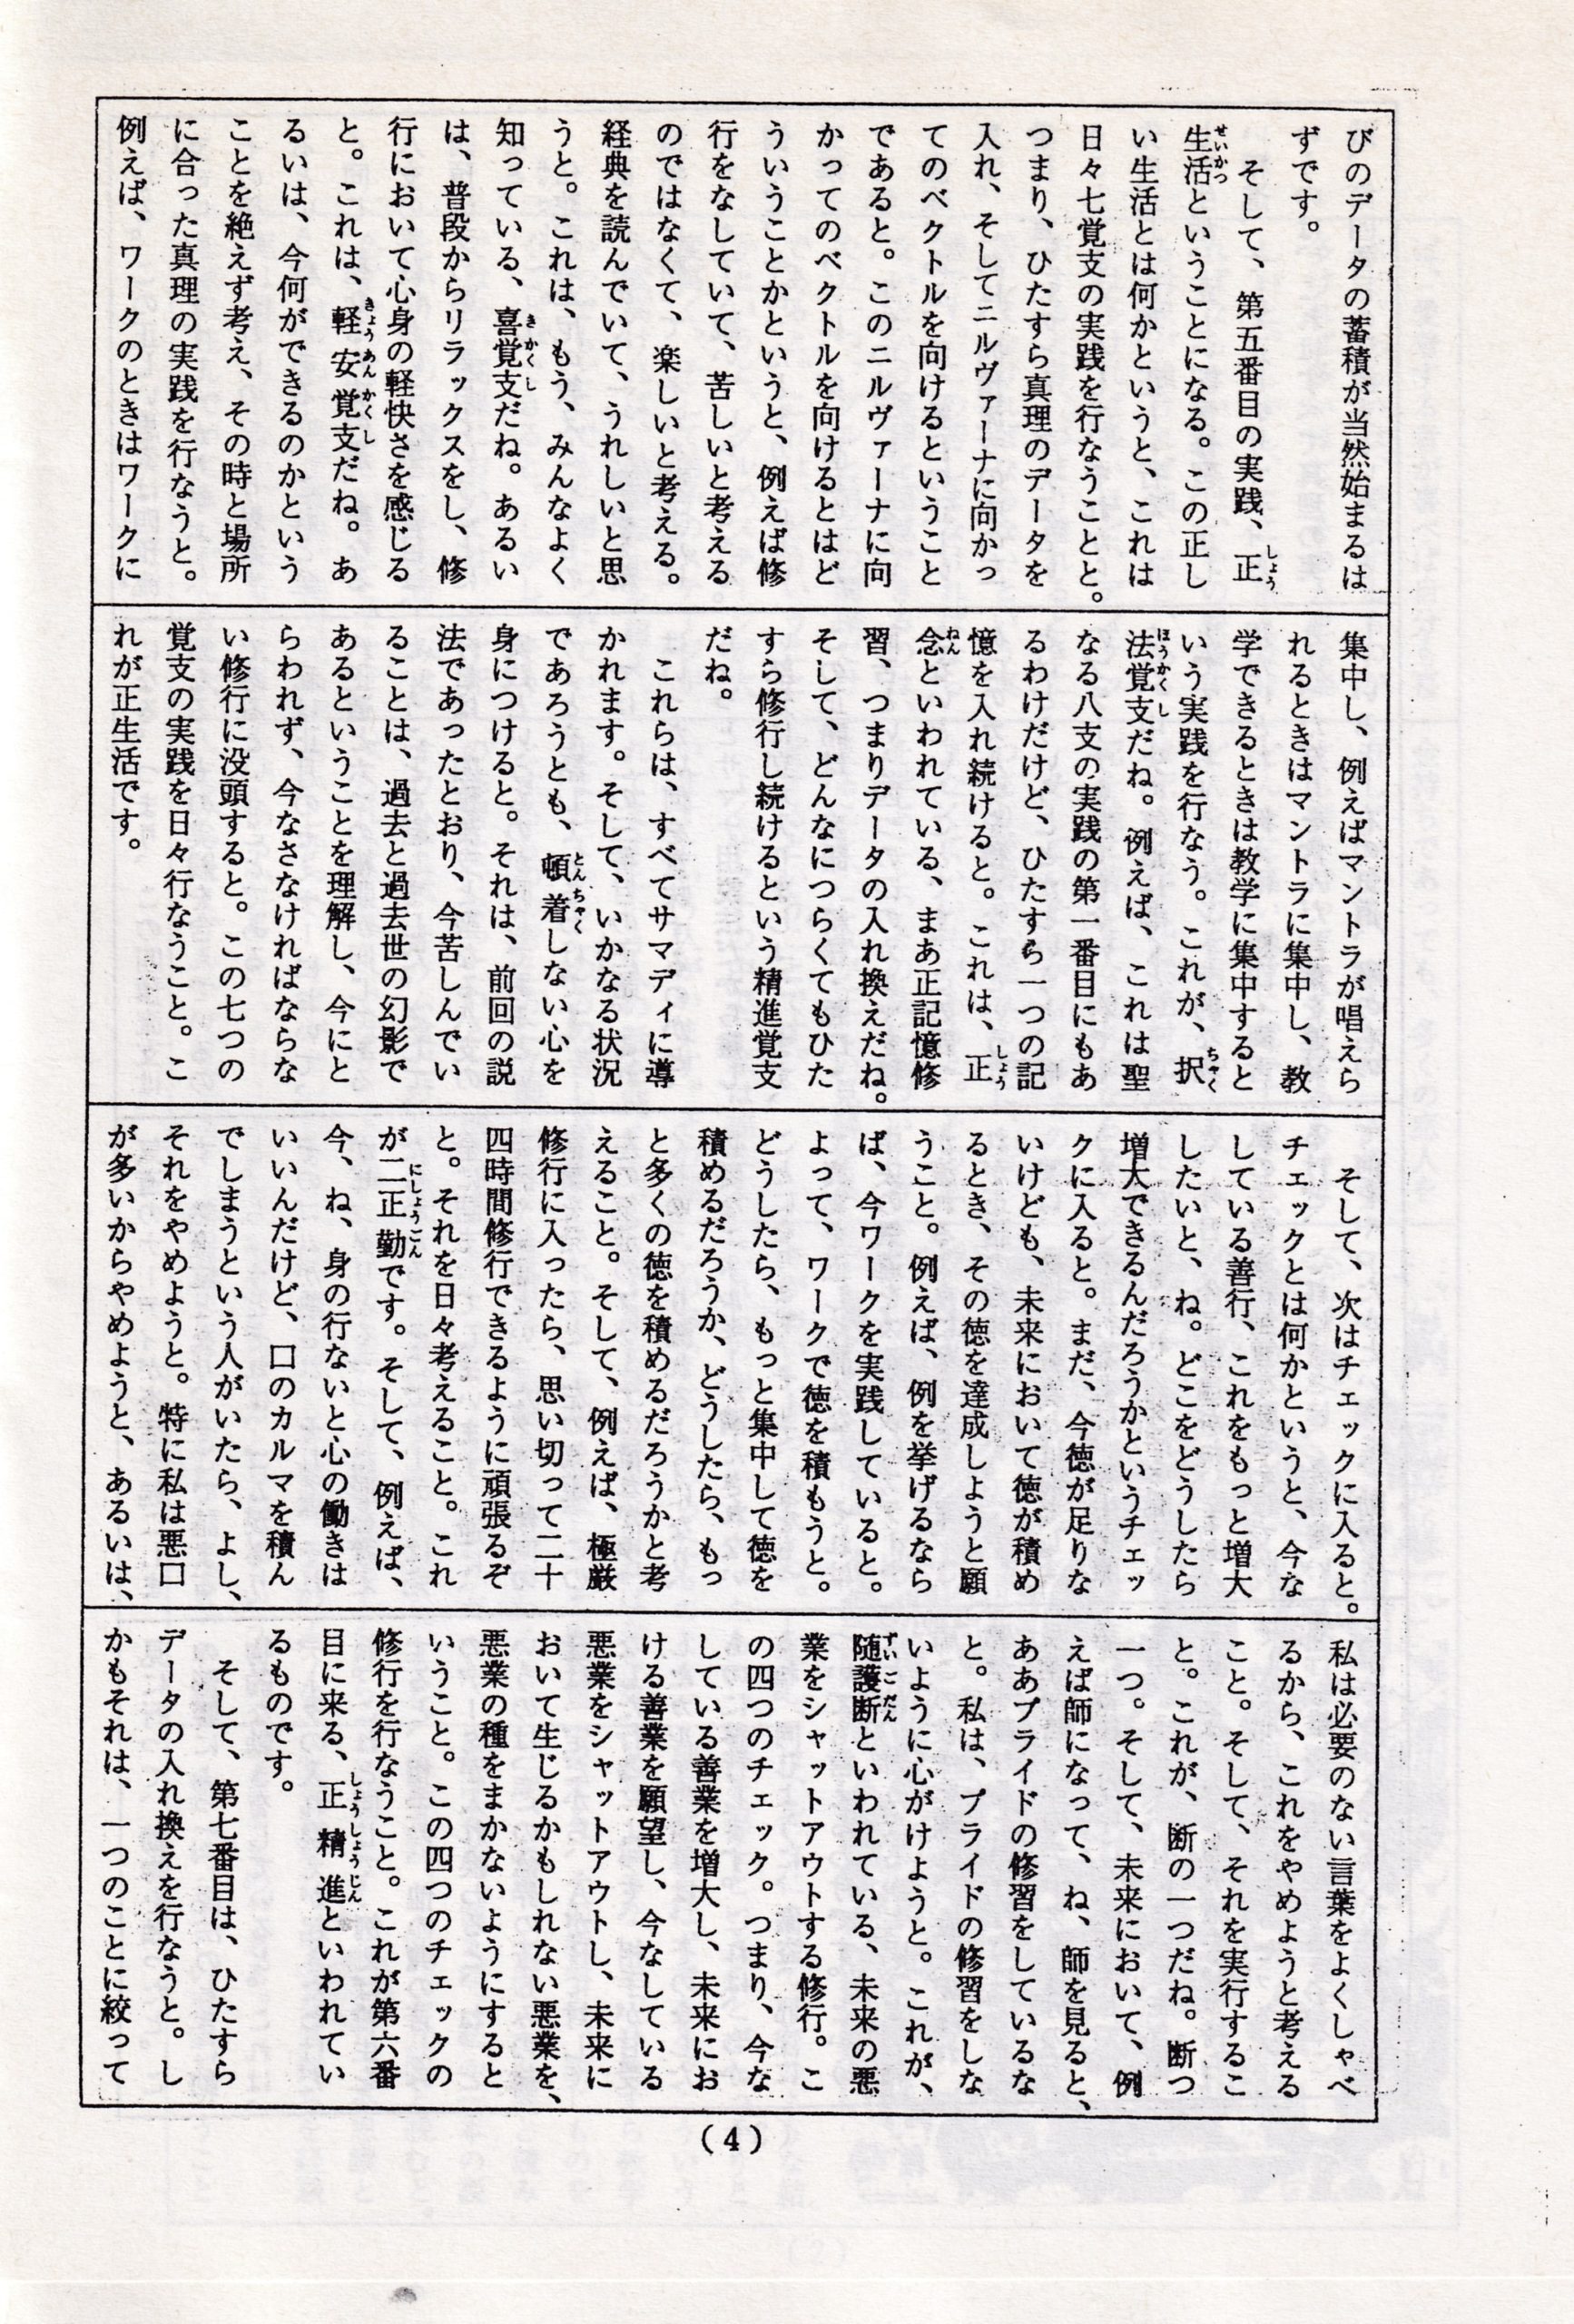 びのデータの蓄積が当然始まるは
ずです。
　そして、第五番目の実践、正
生活ということになる。この正し
い生活とは何かというと、これは
日々七覚支の実践を行なうことと。
つまり、ひたすら真理のデータを
入れ、そしてニルヴァーナに向かっ
てのベクトルを向けるということ
であると。このニルヴァーナに向
かってのベクトルを向けるとはど
ういうことかというと、例えば修
行をなしていて、苦しいと考える
のではなくて、楽しいと考える。
経典を読んでいて、うれしいと思
うと。これは、もう、みんなよく
知っている、喜覚支だね。あるい
は、普段からリラックスをし、修
行において心身の軽快さを感じる
と。これは、軽安覚支だね。あ
るいは、今何ができるのかという
ことを絶えず考え、その時と場所
に合った真理の実践を行なうと。
例えば、ワークのときはワークに
集中し、例えばマントラが唱えら
れるときはマントラに集中し、教
学できるときは教学に集中すると
いう実践を行なう。これが、択
法覚支だね。例えば、これは聖
なる八支の実践の第一番目にもあ
るわけだけど、ひたすら一つの記
憶を入れ続けると。これは、正
念といわれている、まあ正記憶修
習、つまりデータの入れ換えだね。
そして、どんなにつらくてもひた
すら修行し続けるという精進覚支
だね。
　これらは、すべてサマディに導
かれます。そして、いかなる状況
であろうとも、頓着しない心を
身につけると。それは、前回の説
法であったとおり、今苦しんでい
ることは、過去と過去世の幻影で
あるということを理解し、今にと
らわれず、今なさなければならな
い修行に没頭すると。この七つの
覚支の実践を日々行なうこと。こ
れが正生活です。
　そして、次はチェックに入ると。
チェックとは何かというと、今な
している善行、これをもっと増大
したいと、ね。どこをどうしたら
増大できるんだろうかというチェッ
クに入ると。まだ、今徳が足りな
いけども、未来において徳が積め
るとき、その徳を達成しようと願
うこと。例えば、例を挙げるなら
ば、今ワークを実践していると。
よって、ワークで徳を積もうと。
どうしたら、もっと集中して徳を
積めるだろうか、どうしたら、もっ
と多くの徳を積めるだろうかと考
えること。そして、例えば、極厳
修行に入ったら、思い切って二十
四時間修行できるように頑張るぞ
と。それを日々考えること。これ
が二正勤です。そして、例えば、
今、ね、身の行ないと心の働きは
いいんだけど、口のカルマを積ん
でしまうという人がいたら、よし、
それをやめようと。特に私は悪口
が多いからやめようと、あるいは、
私は必要のない言葉をよくしゃべ
るから、これをやめようと考える
こと。そして、それを実行するこ
と。これが、断の一つだね。断つ
一つ。そして、未来において、例
えば師になって、ね、師を見ると、
ああプライドの修習をしているな
と。私は、プライドの修習をしな
いように心がけようと。これが、
随護断といわれている、未来の悪
業をシャットアウトする修行。こ
の四つのチェック。つまり、今な
している善業を増大し、未来にお
ける善業を願望し、今なしている
悪業をシャットアウトし、未来に
おいて生じるかもしれない悪業を、
悪業の種をまかないようにすると
いうこと。この四つのチェックの
修行を行なうこと。これが第六番
目に来る、正精進といわれてい
るものです。
　そして、第七番目は、ひたすら
データの入れ換えを行なうと。し
かもそれは、一つのことに絞って
(4)